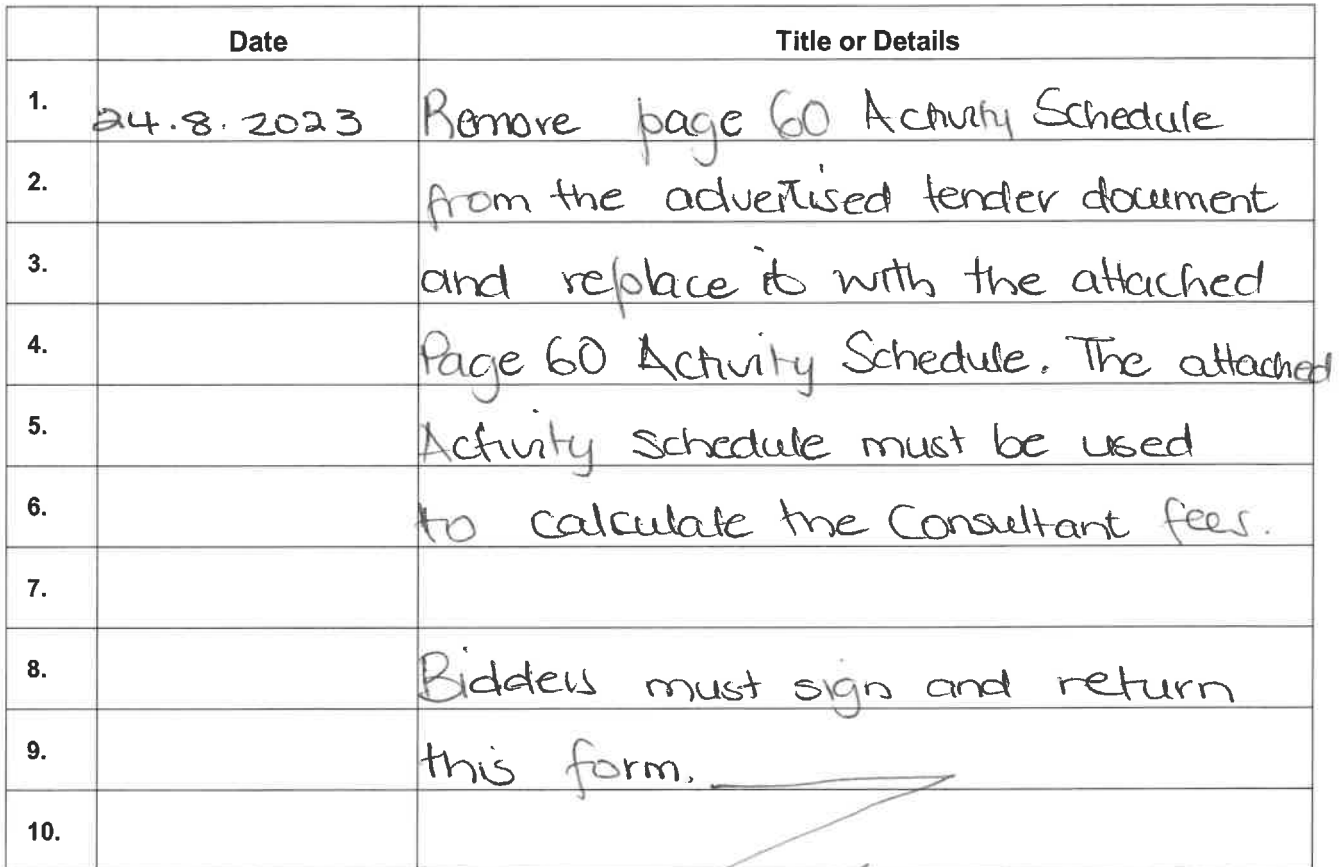 Date Title or Details
1. 24.8.2023 Remove page 60 Activity Schedule
2. from the advertised tender document
3. and replace it with the attached
4. Page 60 Activity Schedule. The attached
5. Activity Schedule must be used
6. to calculate the Consultant fees.
7.
8. Bidders must sign and return
9. this form.
10.